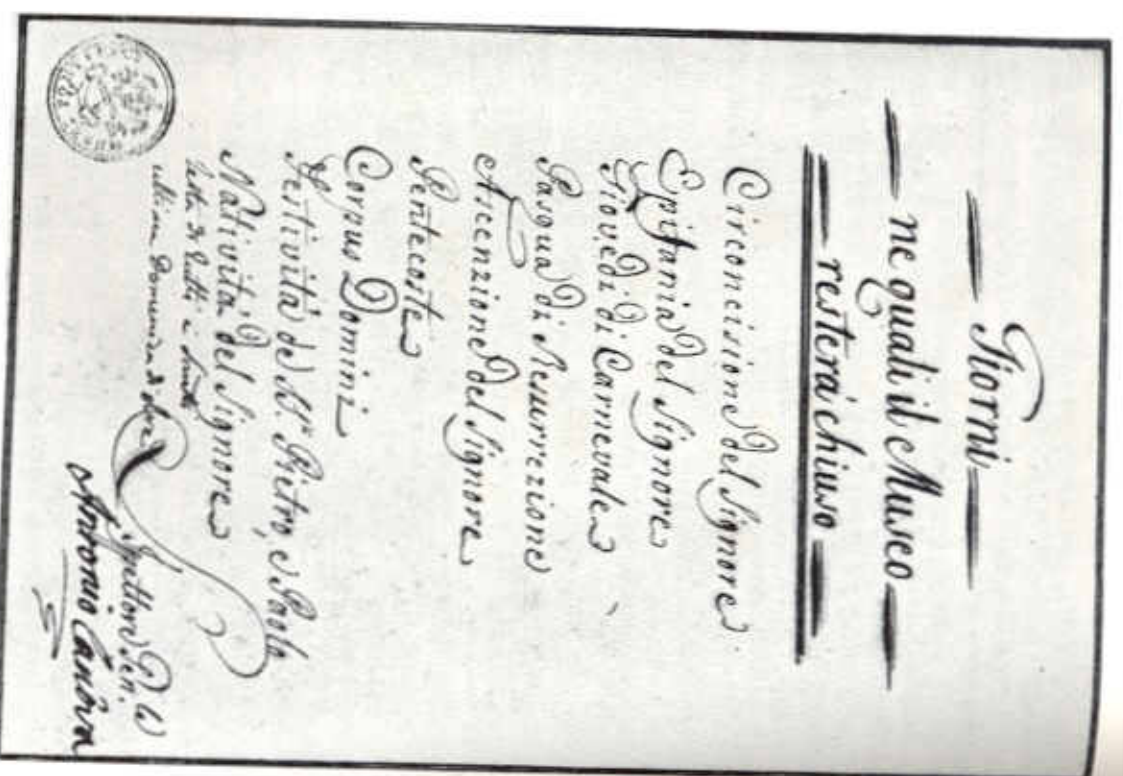 Giorni
ne quali il Museo
resterà chiuso
Circoncisione del Signore
Epifania del Signore
Giovedì di Carnevale
Pasqua di Resurrezione
Ascenzione del Signore
Pentecoste
Corpus Domini
Festività de SS. Pietro, e Paolo
Natività del Signore
festa di tutti i Santi
ultima Domenica di
Antonio Canova